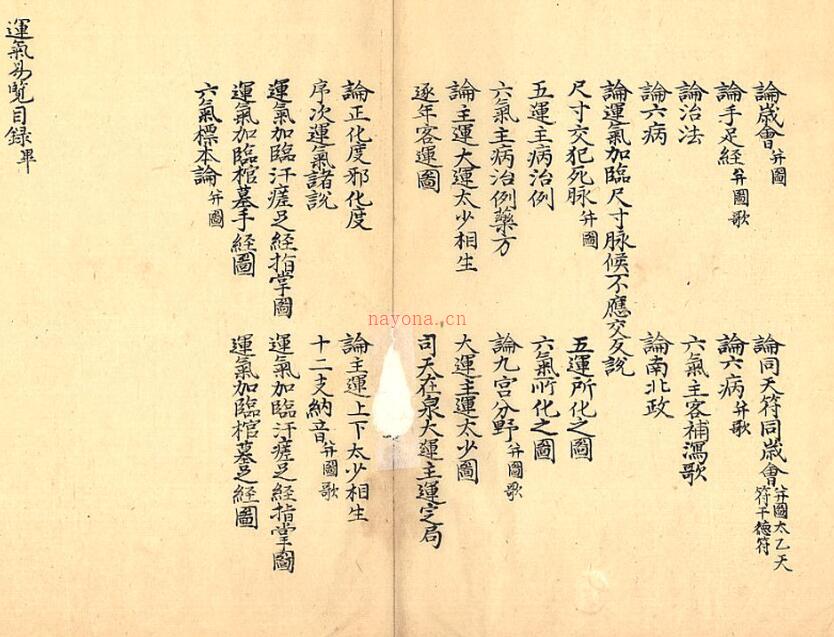 論歲會并圖
論同天符同歲會并圖太乙天符干德符
論手足經并圖歌
論六病并歌
論治法
六氣主客補瀉歌
論六病
論南北政
論運氣加臨尺寸脉候不應交反說
尺寸交犯死脉并圖
五運所化之圖
五運主病治例
六氣所化之圖
六氣主病治例藥方
論九宮分野并圖歌
論主運大運太少相生
大運主運太少圖
逐年客運圖
司天在泉大運主運定局
論正化度邪化度
論主運上下太少相生
序次運氣諸說
十二支納音并圖歌
運氣加臨汗瘥足經指掌圖
運氣加臨汗瘥足經指掌圖
運氣加臨棺墓手經圖
運氣加臨棺墓足經圖
六氣標本論并圖
運氣易覧目録畢
nayona.cn